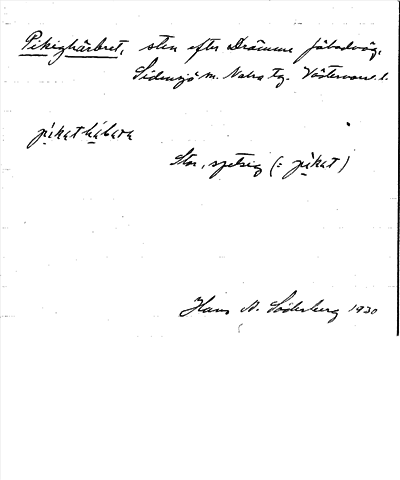 Pikighärbret, sten efter Drömme fäbodväg,
Sidensjö sn. Nätra tg. Västernorrl. l.
pikat häbarə
Stor, spetsig (: pikat)
Hans A. Söderberg 1930